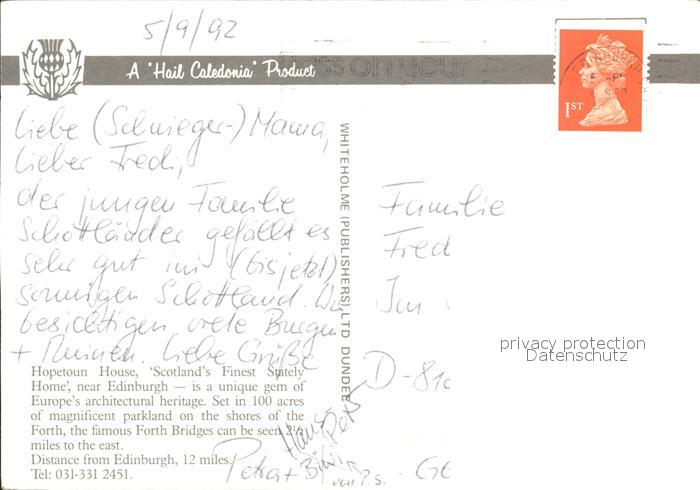 5/9/92
A "Hail Caledonia" Product
1ST
Liebe (Schwieger-) Mama,
lieber Fredi,
der jungen Familie
Schottländer gefällt es
sehr gut im (bis jetzt)
sonnigen Schottland. Wir
besichtigen viele Burgen
+ Ruinen. Liebe Grüße
Hans
Peter
Petra +
von P.S.
WHITEHOLME (PUBLISHERS) LTD DUNDEE
Familie
Fred
Im
D-810
privacy protection
Datenschutz
Hopetoun House, 'Scotland's Finest Stately
Home', near Edinburgh — is a unique gem of
Europe's architectural heritage. Set in 100 acres
of magnificent parkland on the shores of the
Forth, the famous Forth Bridges can be seen 2½
miles to the east.
Distance from Edinburgh, 12 miles.
Tel: 031-331 2451.